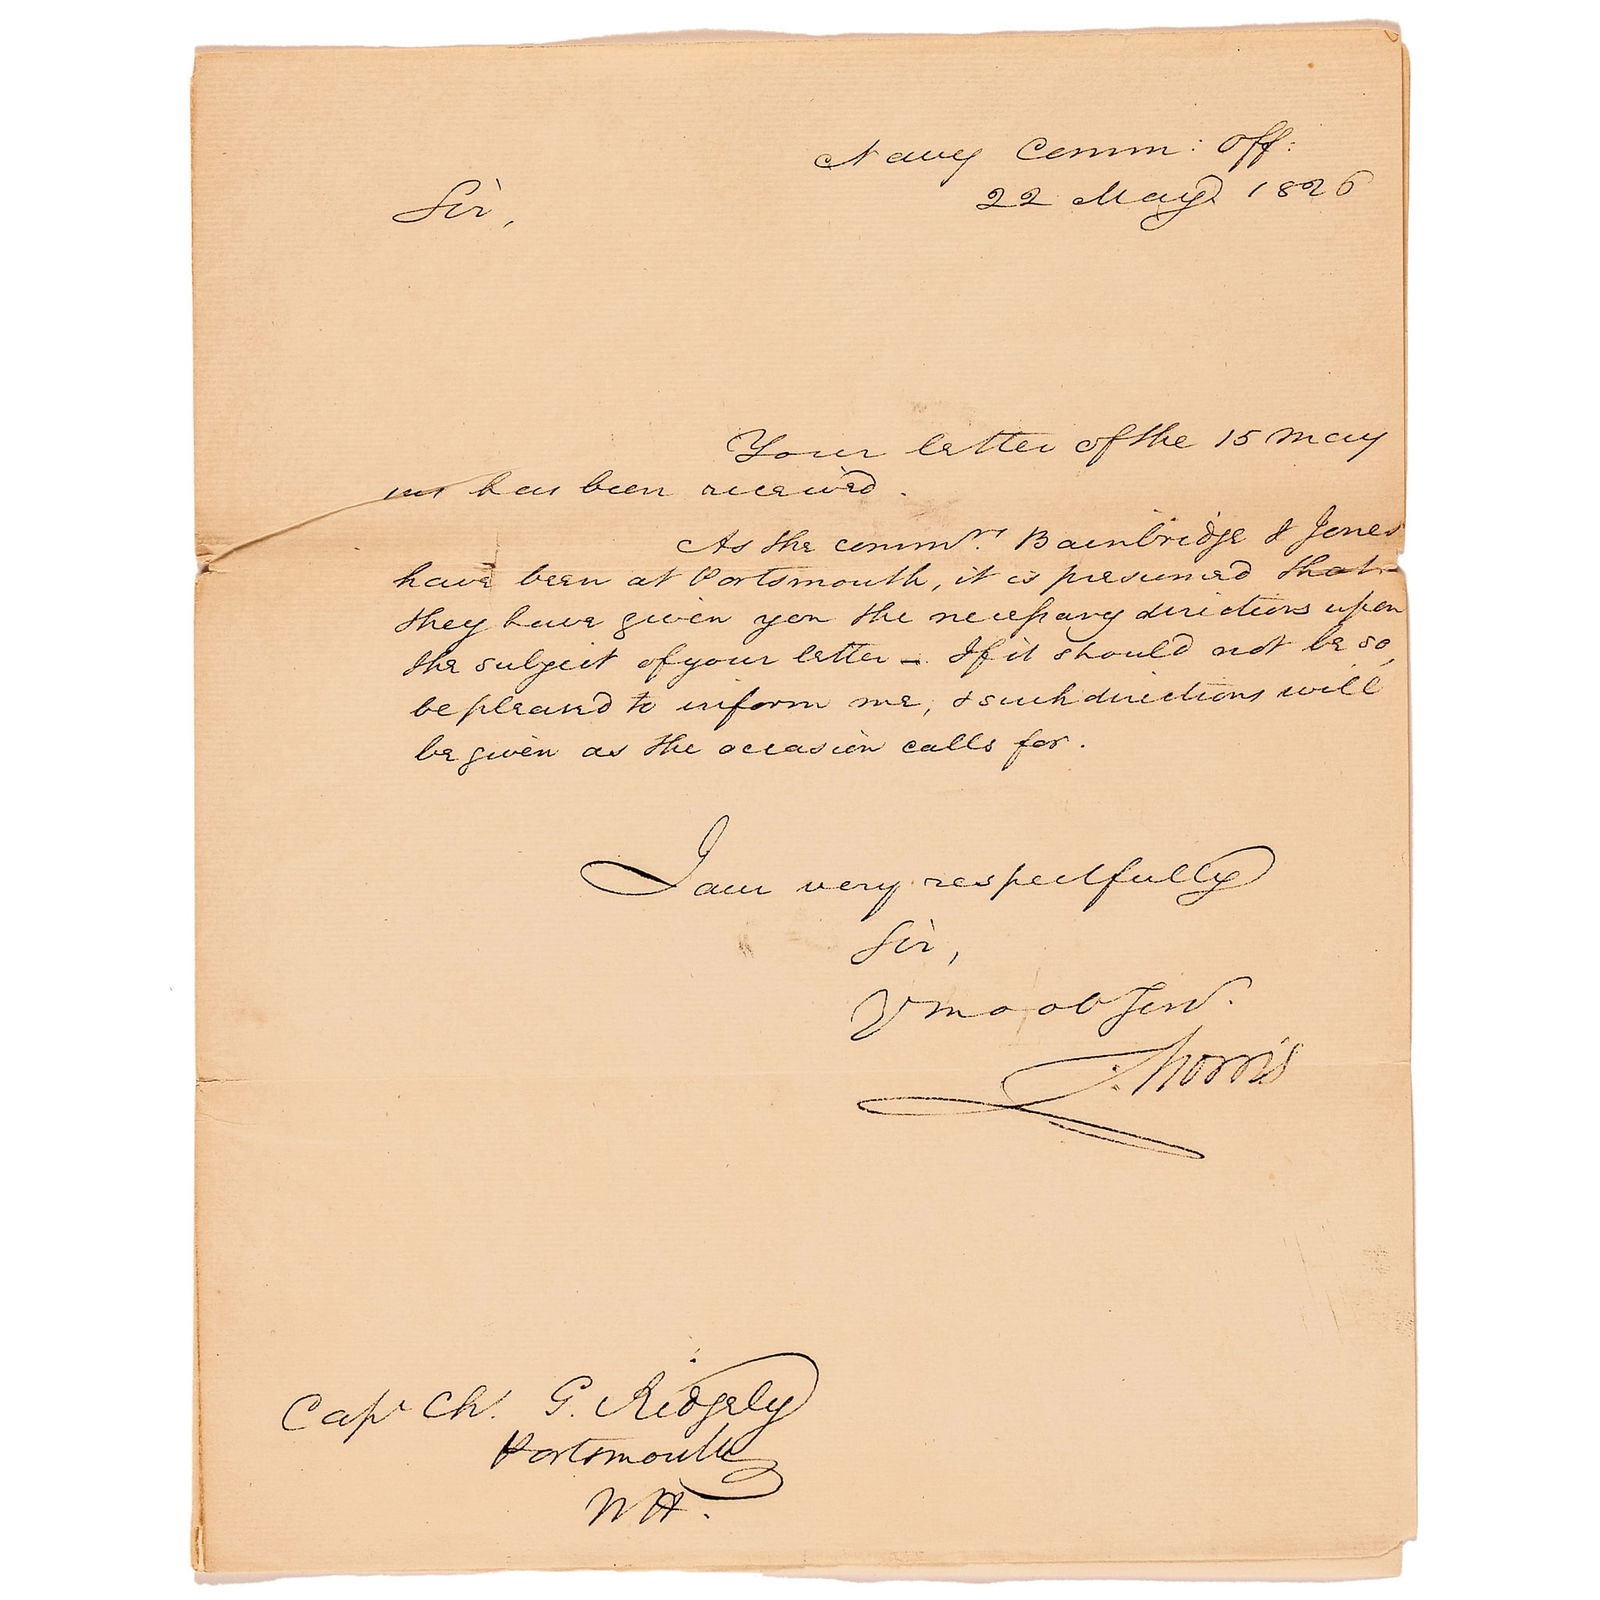 Navy Comm: Off:
22 May 1826
Sir,
Your letter of the 15 May
has been received.
As the commrs. Bainbridge & Jones
have been at Portsmouth, it is presumed that
they have given you the necessary directions upon
the subject of your letter - If it should not be so,
be pleased to inform me, & such directions will
be given as the occasion calls for.
I am very respectfully
Sir,
Yr mo ob Servt.
C. Morris
Capt Ch. G. Ridgely
Portsmouth
NH.